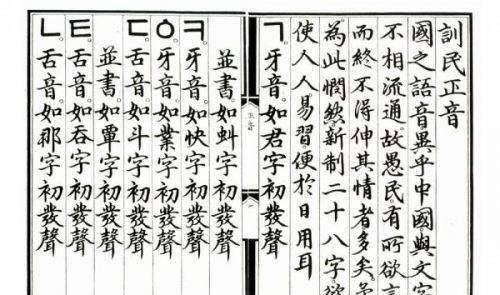 訓民正音
國之語音異乎中國與文字
不相流通。故愚民有所欲言
而終不得伸其情者多矣。予
為此憫然新制二十八字欲
使人人易習便於日用耳
ㄱ。牙音。如君字初發聲
並書。如虯字初發聲
ㅋ。牙音。如快字初發聲
ㆁ。牙音。如業字初發聲
ㄷ。舌音。如斗字初發聲
並書。如覃字初發聲
ㅌ。舌音。如吞字初發聲
ㄴ。舌音。如那字初發聲